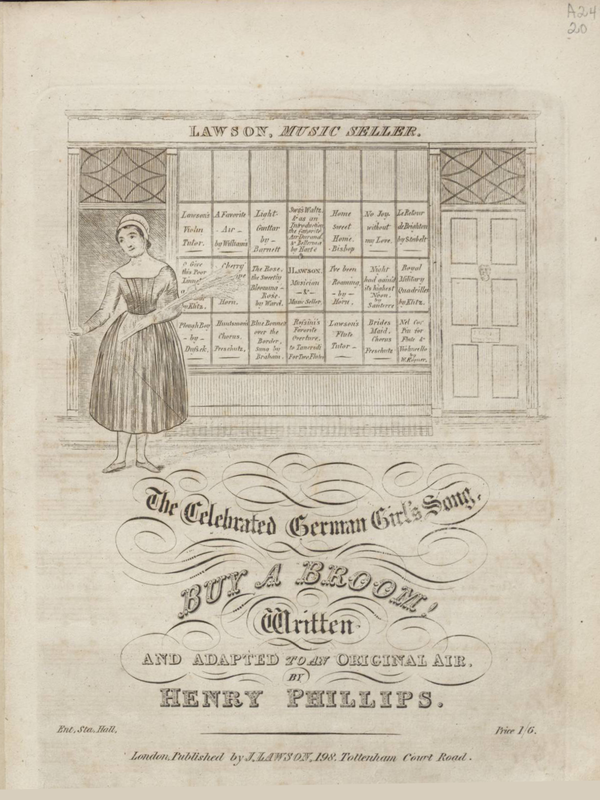 A24
20
LAWSON, MUSIC SELLER.
Lawson's
Violin
Tutor.
A Favorite
Air
by Williams
Light
Guittar
by
Barnett
Swiss Waltz
& as an
Introduction
the favorite
Home
Sweet
Home.
Bishop
No Joy
without
my Love.
Le Retour
de Brighton
by
O Give
this Poor
by Klitz.
Cherry
Horn.
The Rose,
the Sweetly
Blooming
Rose.
by Ward.
J LAWSON.
Musician
&
Music Seller.
I've been
Roaming,
by
Horn.
Night
had gain'd
its highest
Noon.
by
Royal
Military
Quadrilles
by Klitz.
Plough Boy
by
Dussek.
Huntsmen's
Chorus.
Freischutz.
Blue Bonnets
over the
Border,
sung by
Braham.
Rossini's
Favorite
Overture,
to Tancredi
For Two Flutes
Lawson's
Flute
Tutor
Brides
Maid.
Chorus
Freischutz
Flute &
Violoncello
by
The Celebrated German Girl's Song,
BUY A BROOM!
Written
AND ADAPTED TO AN ORIGINAL AIR,
BY
HENRY PHILLIPS.
Ent. Sta. Hall,
Price 1/6.
London, Published by J. LAWSON, 198, Tottenham Court Road.